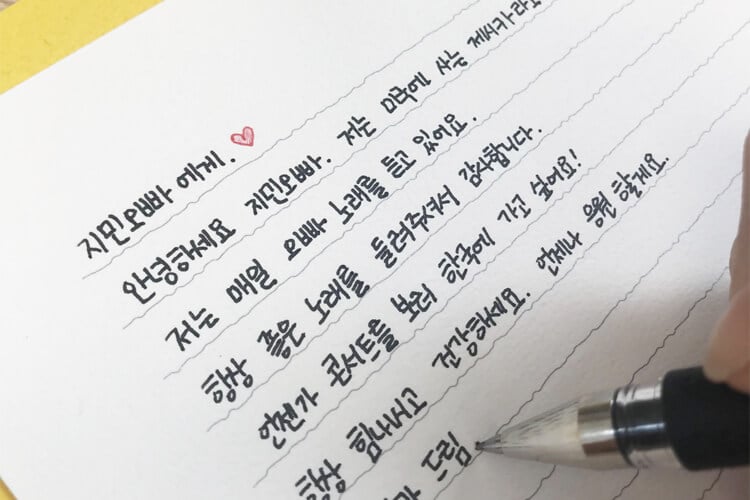 지민오빠 에게. ♥
안녕하세요 지민오빠. 저는 미국에 사는 제시카라고
저는 매일 오빠 노래를 듣고 있어요.
항상 좋은 노래를 들려주셔서 감사합니다.
언젠가 콘서트를 보러 한국에 가고 싶어요!
항상 힘내시고 건강하세요. 언제나 응원 할게요.
드림